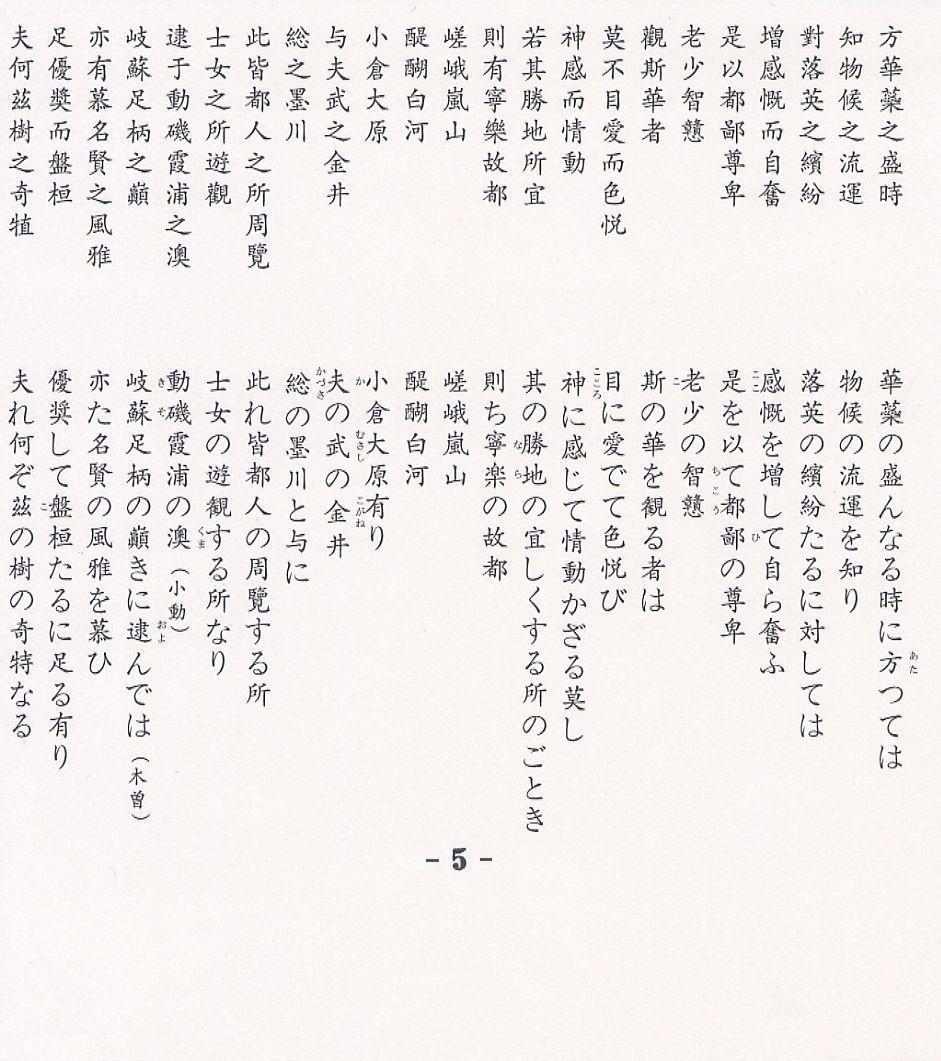 方華蘂之盛時
知物候之流運
對落英之繽紛
增感慨而自奮
是以都鄙尊卑
老少智戇
觀斯華者
莫不目愛而色悦
神感而情動
若其勝地所宜
則有寧樂故都
嵯峨嵐山
醍醐白河
小倉大原
与夫武之金井
総之墨川
此皆都人之所周覽
士女之所遊觀
逮于動磯霞浦之澳
岐蘇足柄之巓
亦有慕名賢之風雅
足優奬而盤桓
夫何茲樹之奇犆
華蘂の盛んなる時に方つては
あた
物候の流運を知り
落英の繽紛たるに対しては
感慨を増して自ら奮ふ
ここ
是を以て都鄙の尊卑
ひ
老少の智戇
ちこう
斯の華を観る者は
こ
目に愛でて色悦び
神に感じて情動かざる莫し
こころ
其の勝地の宜しくする所のごとき
則ち寧楽の故都
なら
嵯峨嵐山
醍醐白河
小倉大原有り
夫の武の金井
か むさし こがね
総の墨川と与に
かづさ
此れ皆都人の周覽する所
士女の遊観する所なり
動磯霞浦の澳(小動)
くま
岐蘇足柄の巓きに逮んでは(木曽)
きそ およ
亦た名賢の風雅を慕ひ
優奨して盤桓たるに足る有り
夫れ何ぞ茲の樹の奇特なる
こ
- 5 -